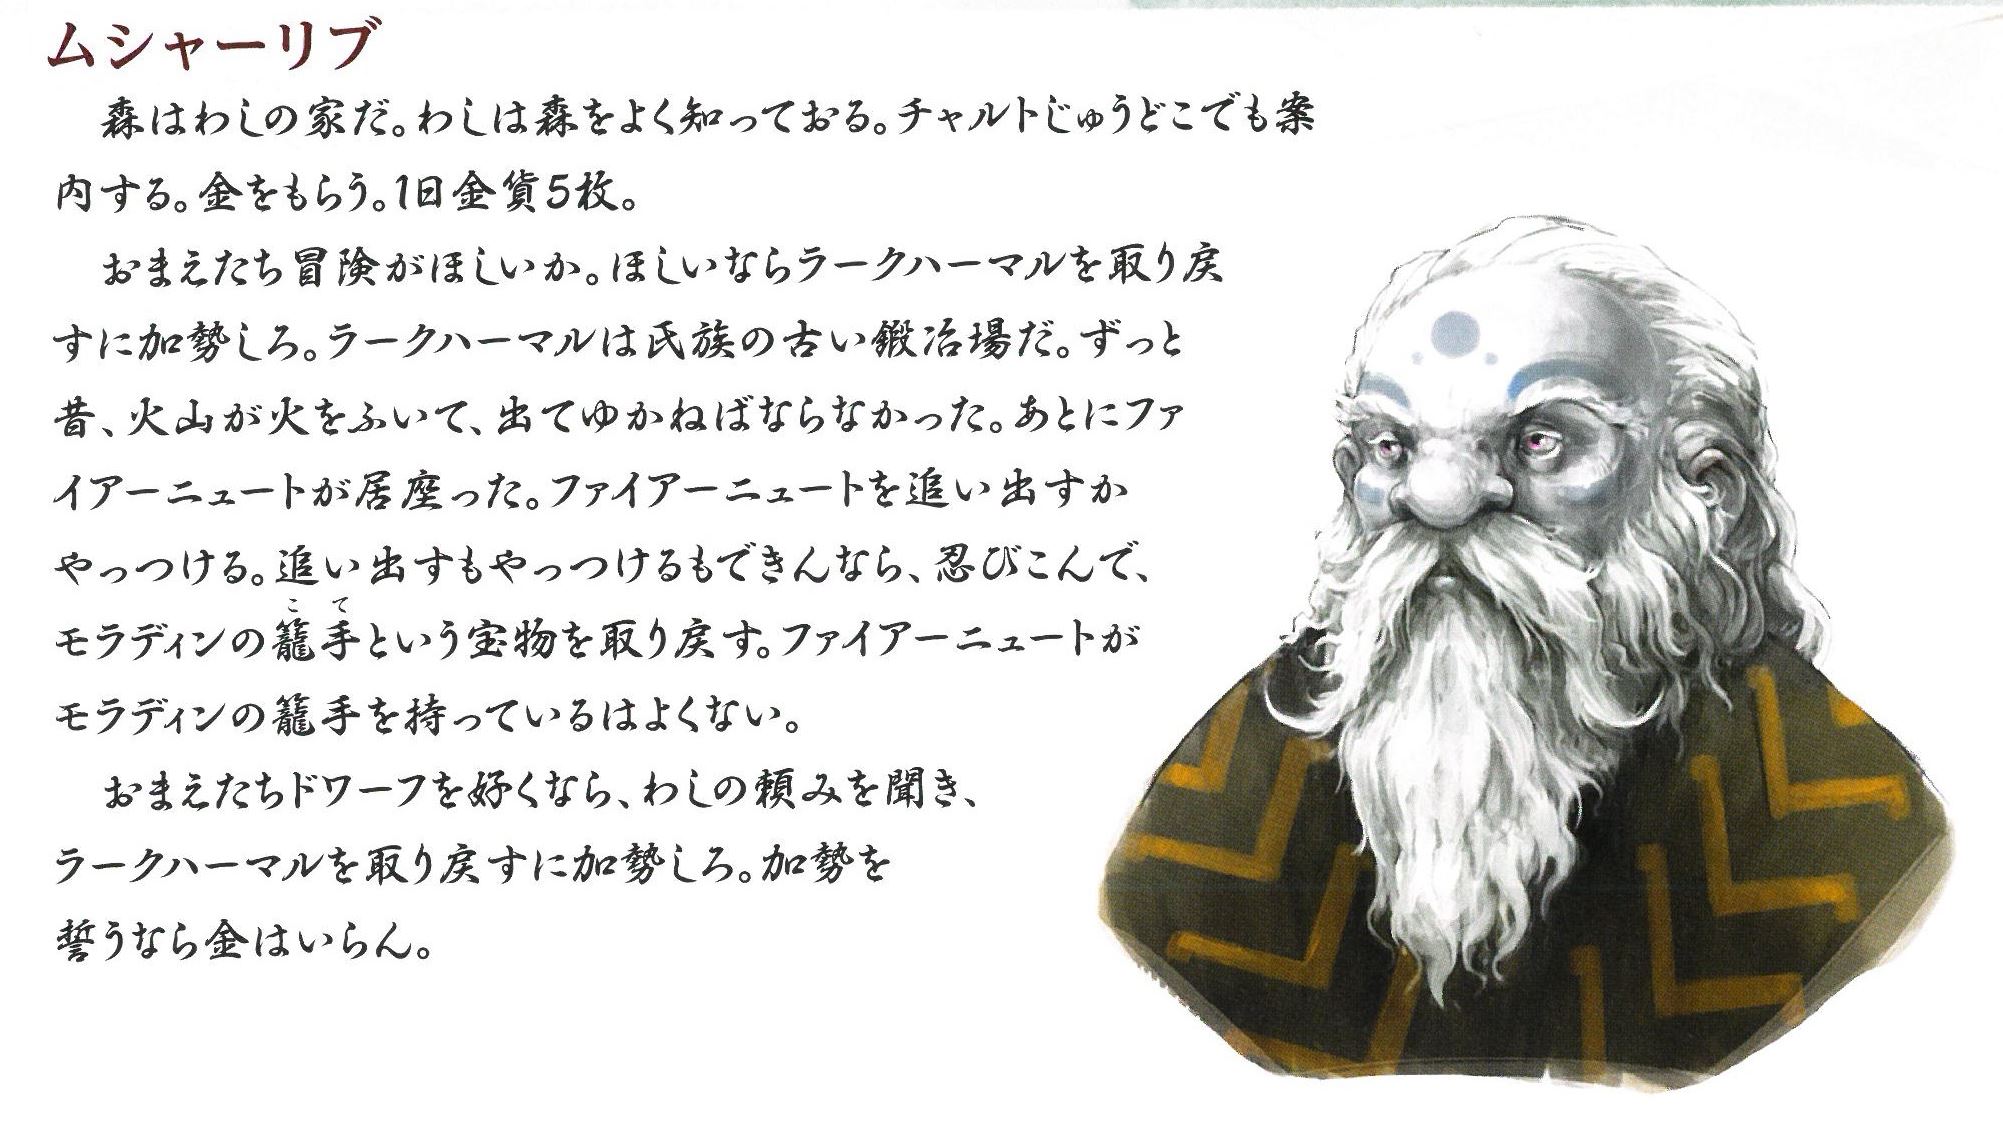 ムシャーリブ
森はわしの家だ。わしは森をよく知っておる。チャルトじゅうどこでも案
内する。金をもらう。1日金貨5枚。
おまえたち冒険がほしいか。ほしいならラークハーマルを取り戻
すに加勢しろ。ラークハーマルは氏族の古い鍛冶場だ。ずっと
昔、火山が火をふいて、出てゆかねばならなかった。あとにファ
イアーニュートが居座った。ファイアーニュートを追い出すか
やっつける。追い出すもやっつけるもできんなら、忍びこんで、
こて
モラディンの籠手という宝物を取り戻す。ファイアーニュートが
モラディンの籠手を持っているはよくない。
おまえたちドワーフを好くなら、わしの頼みを聞き、
ラークハーマルを取り戻すに加勢しろ。加勢を
誓うなら金はいらん。